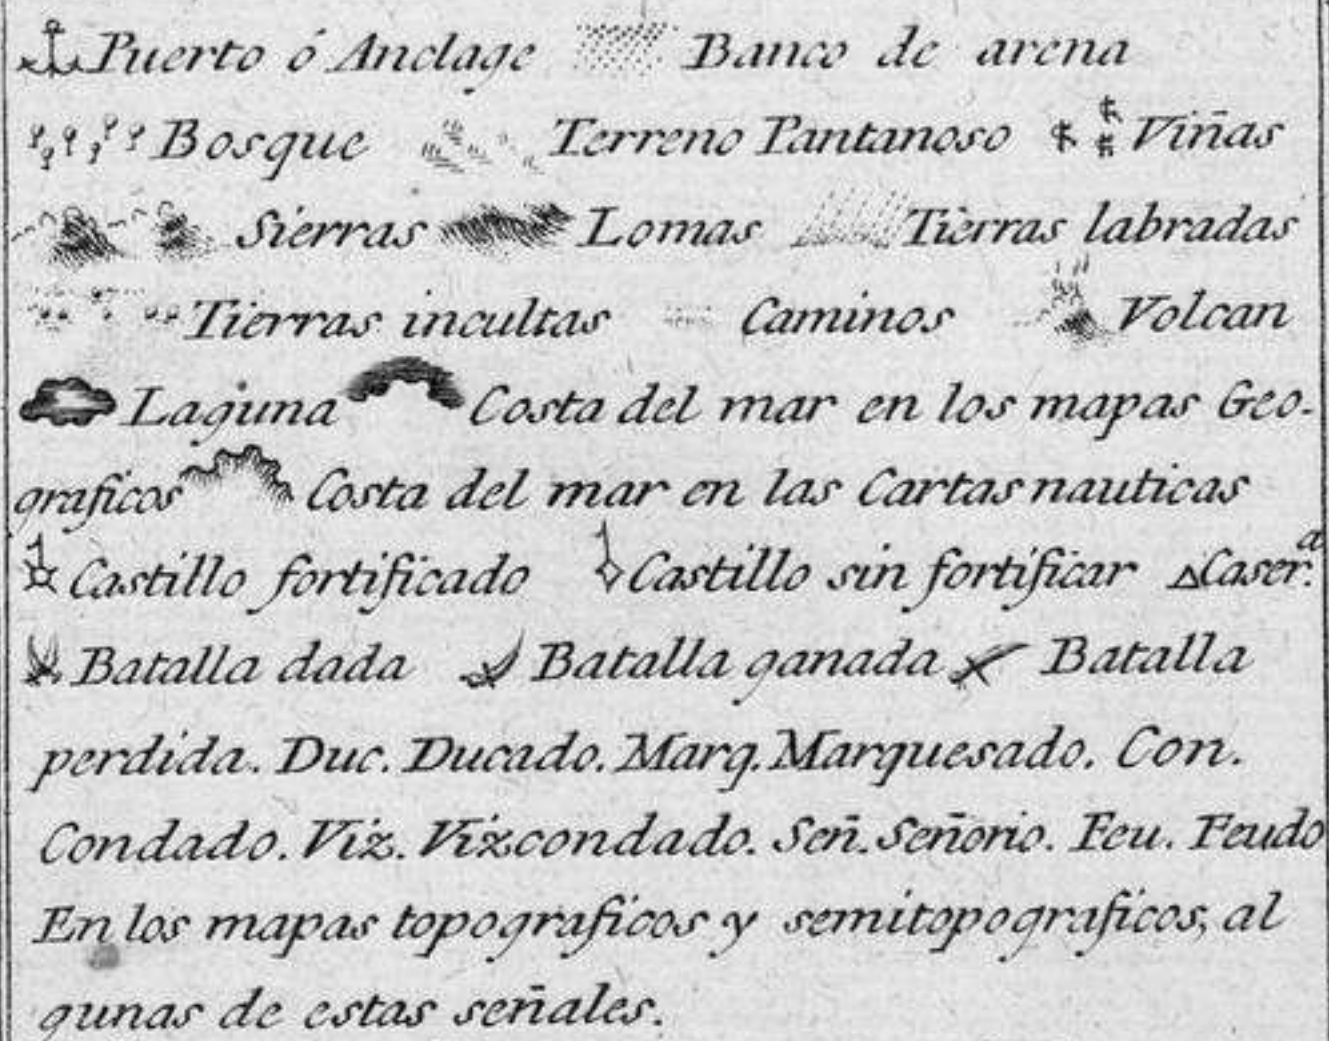 Puerto ó Anclage Banco de arena
Bosque Terreno Pantanoso Viñas
Sierras Lomas Tierras labradas
Tierras incultas Caminos Volcan
Laguna Costa del mar en los mapas Geo-
graficos Costa del mar en las Cartas nauticas
Castillo fortificado Castillo sin fortificar Caser.ª
Batalla dada Batalla ganada Batalla
perdida. Duc. Ducado. Marq. Marquesado. Con.
Condado. Viz. Vizcondado. Señ. Señorio. Feu. Feudo
En los mapas topograficos y semitopograficos, al
gunas de estas señales.